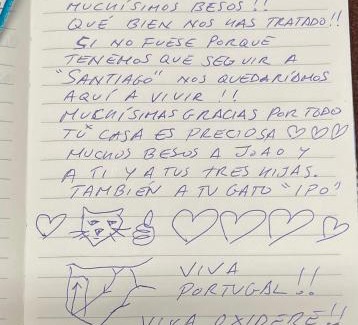 MUCHÍSIMOS BESOS !!
QUÉ BIEN NOS HAS TRATADO!!
SI NO FUESE PORQUE
TENEMOS QUE SEGUIR A
"SANTIAGO" NOS QUEDARÍAMOS
AQUÍ A VIVIR !!
MUCHÍSIMAS GRACIAS POR TODO
TU CASA ES PRECIOSA ♡♡♡
MUCHOS BESOS A JOAO Y
A TI Y A TUS TRES HIJAS.
TAMBIEN A TU GATO "IPO"
VIVA
PORTUGAL!!
VIVA OXIDERÉ!!